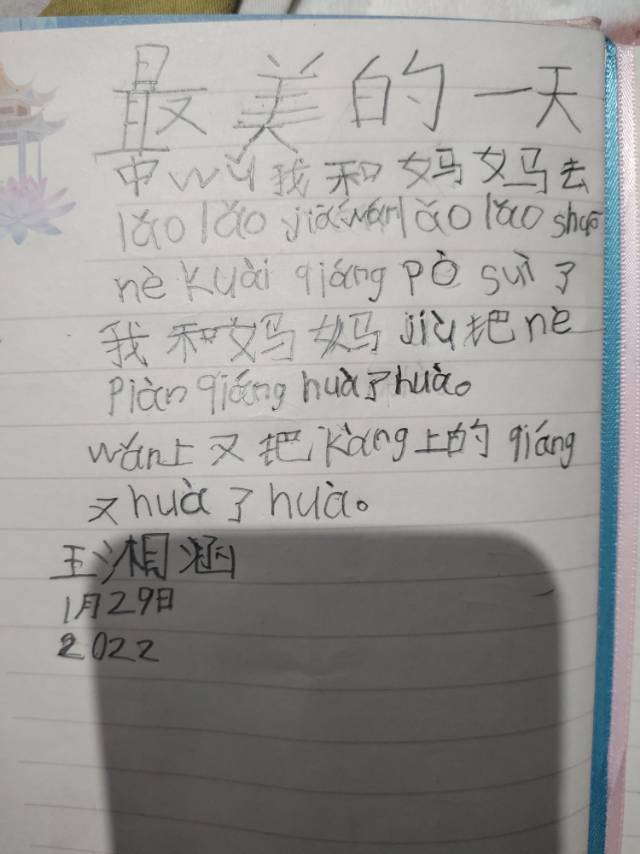 最美的一天
中wǔ我和妈妈去
lǎo lǎo jiā wán lǎo lǎo shuō
nè kuài qiáng pò suì了
我和妈妈 jiù把nè
piàn qiáng huà了huà。
wǎn上又把kàng上的qiáng
又huà了huà。
王湘涵
1月29日
2022